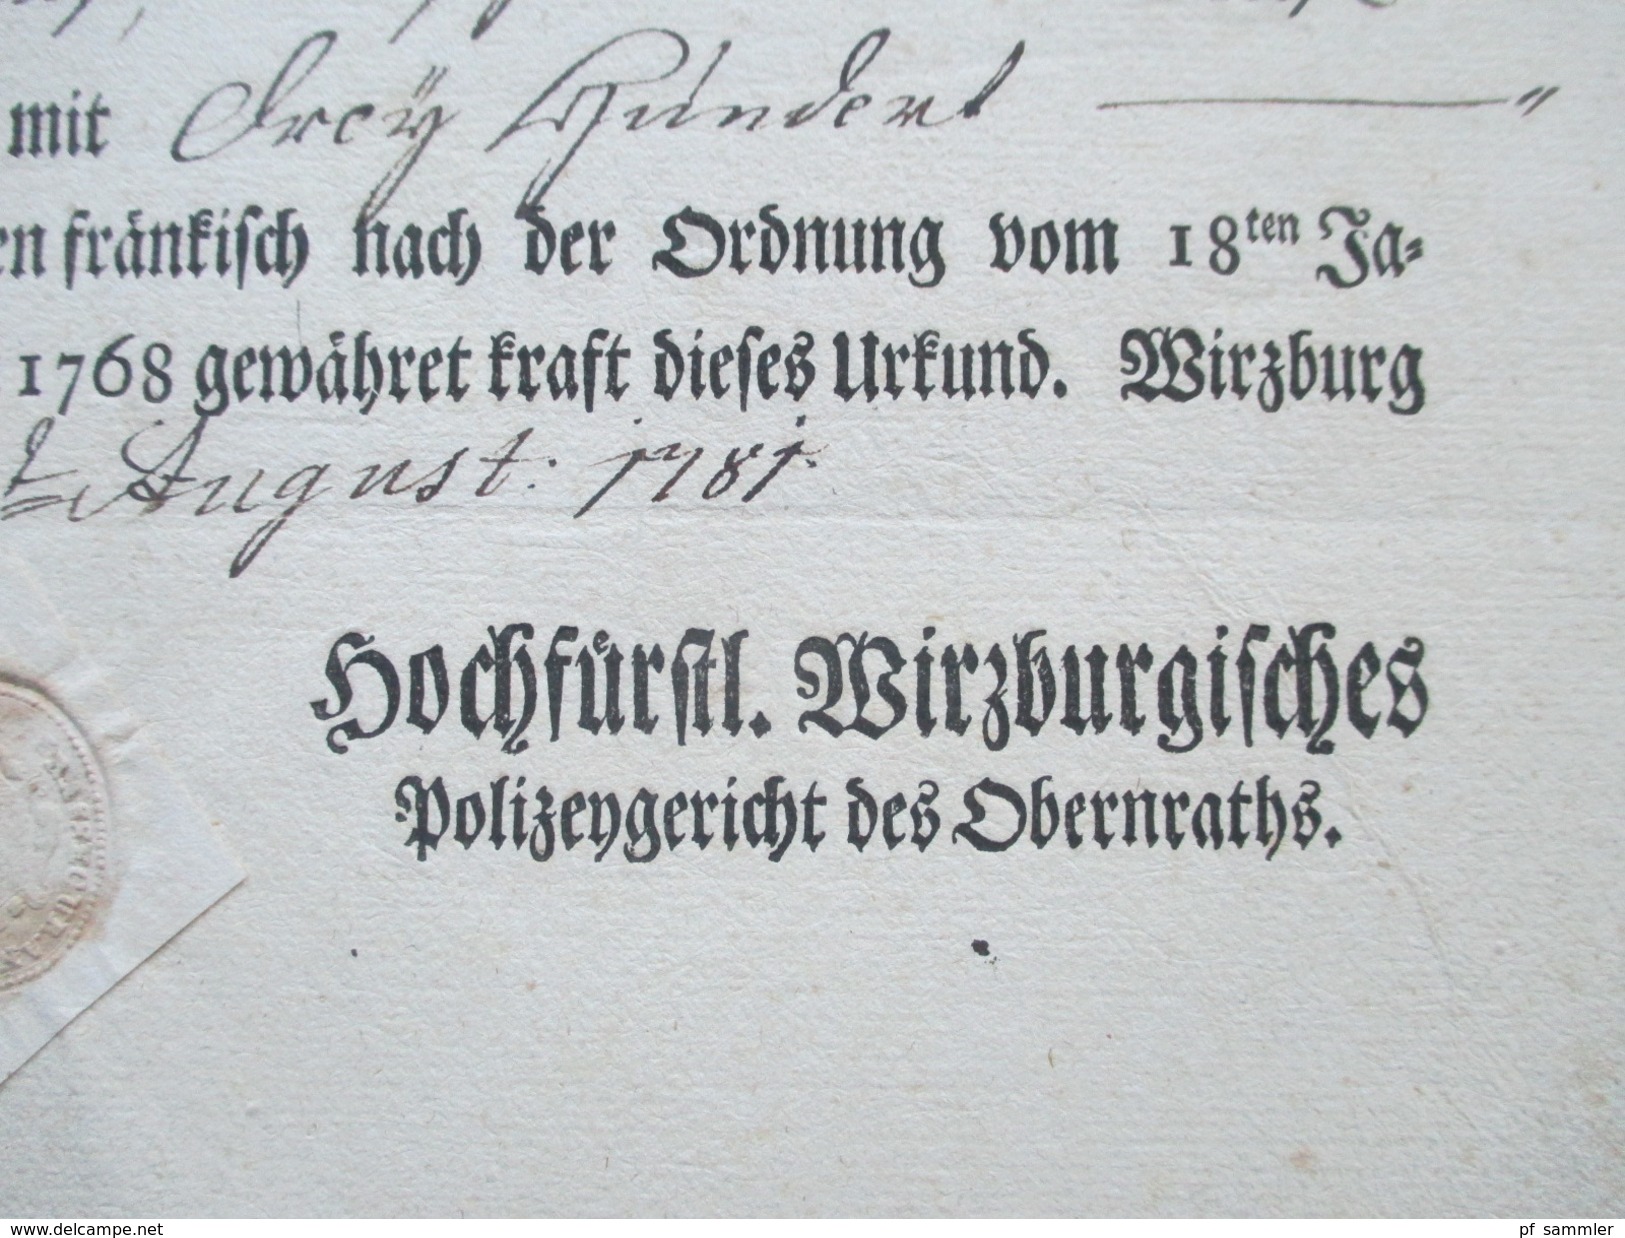 mit Dreÿ Hundert
en fränkisch nach der Ordnung vom 18ten Ja-
1768 gewähret kraft dieses Urkund. Wirzburg
August: 1781.
Hochfürstl. Wirzburgisches
Polizeygericht des Obernraths.
www.delcampe.net
pf_sammler